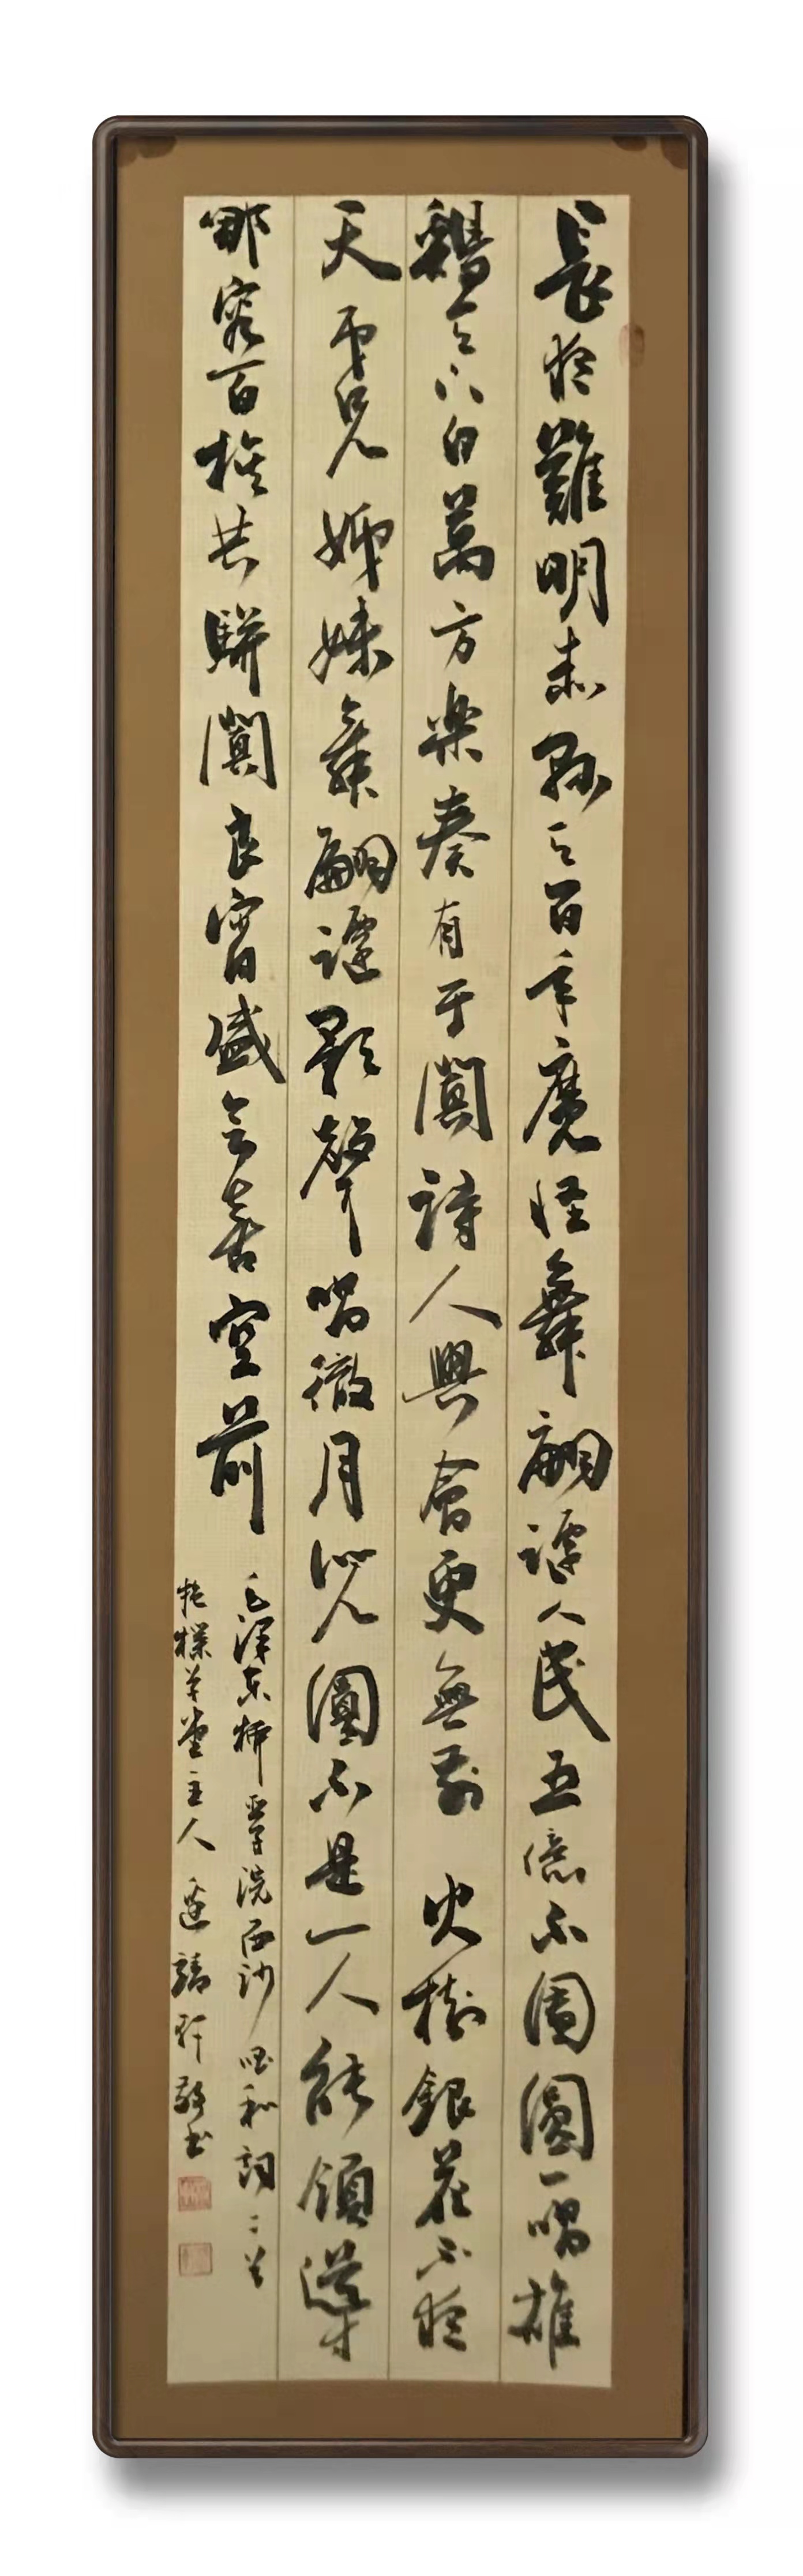 長夜難明赤縣天百年魔怪舞翩躚人民五億不團圓一唱雄
鷄天下白萬方樂奏有于闐詩人興會更無前 火樹銀花不夜
天弟兄姊妹舞翩躚歌聲唱徹月兒圓不是一人能領導才
那容百族共駢闐良宵盛會喜空前
毛澤東柳亞子浣西沙唱和詞二首
抱樸草堂主人 軒敬書